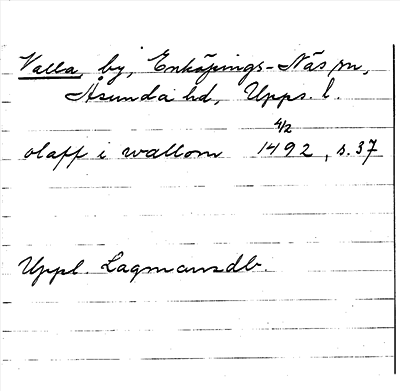 Valla, by, Enköpings-Näs sn,
Åsunda hd, Upps. l.
olaff i wallom 4/2 1492, s. 37
Uppl. Lagmansdb.